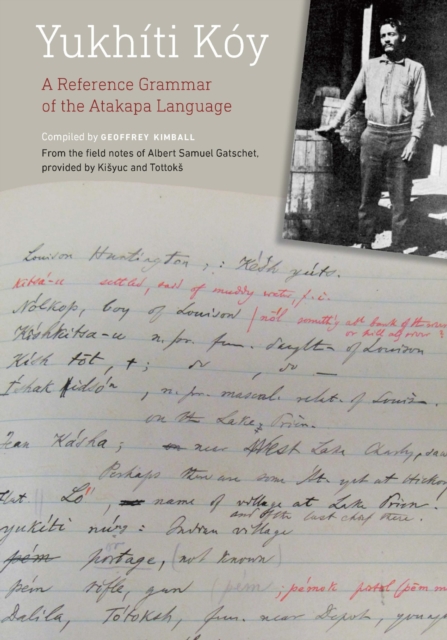 Yukhíti Kóy
A Reference Grammar
of the Atakapa Language
Compiled by GEOFFREY KIMBALL
From the field notes of Albert Samuel Gatschet,
provided by Kišyuc and Tottokš
Louison Huntington;: Késh yúts.
kitsá-u settled, said of muddy water, f. i.
Nólkop, boy of Louison | nól
Kíshkitsa-u n. pr. fem. daughter of Louison
Kish tót, +; do, do —
Íshak, n. pr. mascul. relat. of Louison.
on the Lake Prien.
Jean Kásha; near West Lake Charly,
Perhaps there are some yet at Hickory
Ló, name of village at Lake Prien.
and of the last chief there.
yukíti nuṛs: Indian village
pém portage, (not known)
pém rifle, gun (pém); pémok
Dalíla, Tótoksh, fem. near Depot, young